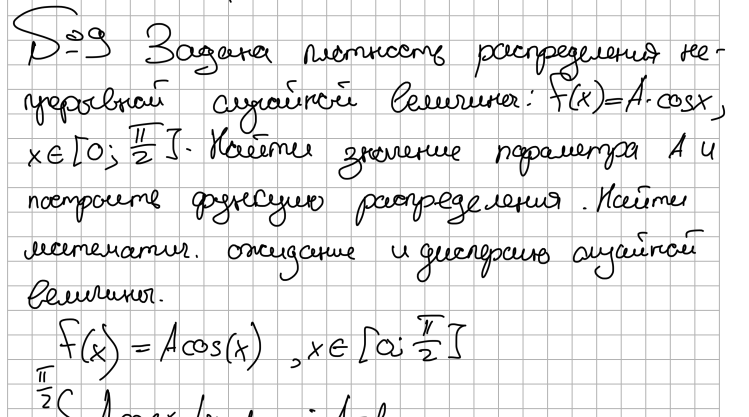 №9 Задана плотность распределения не-
прерывной случайной величины: f(x)=A·cosx,
x∈[0; π/2]. Найти значение параметра A и
построить функцию распределения. Найти
математич. ожидание и дисперсию случайной
величины.
f(x) = A cos(x) , x∈[0; π/2]